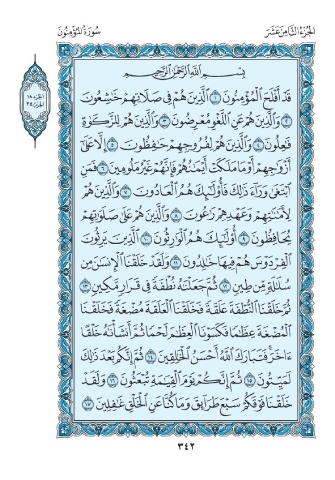 الجزء الثامن عشر
سورة المؤمنون
الجزء ١٨
الحزب ٣٥
بِسْمِ اللَّهِ الرَّحْمَٰنِ الرَّحِيمِ
قَدْ أَفْلَحَ الْمُؤْمِنُونَ ١ الَّذِينَ هُمْ فِي صَلَاتِهِمْ خَاشِعُونَ
٢ وَالَّذِينَ هُمْ عَنِ اللَّغْوِ مُعْرِضُونَ ٣ وَالَّذِينَ هُمْ لِلزَّكَوٰةِ
فَاعِلُونَ ٤ وَالَّذِينَ هُمْ لِفُرُوجِهِمْ حَافِظُونَ ٥ إِلَّا عَلَىٰ
أَزْوَاجِهِمْ أَوْ مَا مَلَكَتْ أَيْمَانُهُمْ فَإِنَّهُمْ غَيْرُ مَلُومِينَ ٦ فَمَنِ
ابْتَغَىٰ وَرَاءَ ذَٰلِكَ فَأُولَٰئِكَ هُمُ الْعَادُونَ ٧ وَالَّذِينَ هُمْ
لِأَمَانَاتِهِمْ وَعَهْدِهِمْ رَاعُونَ ٨ وَالَّذِينَ هُمْ عَلَىٰ صَلَوَاتِهِمْ
يُحَافِظُونَ ٩ أُولَٰئِكَ هُمُ الْوَارِثُونَ ١٠ الَّذِينَ يَرِثُونَ
الْفِرْدَوْسَ هُمْ فِيهَا خَالِدُونَ ١١ وَلَقَدْ خَلَقْنَا الْإِنسَانَ مِن
سُلَالَةٍ مِّن طِينٍ ١٢ ثُمَّ جَعَلْنَاهُ نُطْفَةً فِي قَرَارٍ مَّكِينٍ ١٣
ثُمَّ خَلَقْنَا النُّطْفَةَ عَلَقَةً فَخَلَقْنَا الْعَلَقَةَ مُضْغَةً فَخَلَقْنَا
الْمُضْغَةَ عِظَامًا فَكَسَوْنَا الْعِظَامَ لَحْمًا ثُمَّ أَنشَأْنَاهُ خَلْقًا
آخَرَ فَتَبَارَكَ اللَّهُ أَحْسَنُ الْخَالِقِينَ ١٤ ثُمَّ إِنَّكُم بَعْدَ ذَٰلِكَ
لَمَيِّتُونَ ١٥ ثُمَّ إِنَّكُمْ يَوْمَ الْقِيَامَةِ تُبْعَثُونَ ١٦ وَلَقَدْ
خَلَقْنَا فَوْقَكُمْ سَبْعَ طَرَائِقَ وَمَا كُنَّا عَنِ الْخَلْقِ غَافِلِينَ ١٧
٣٤٢